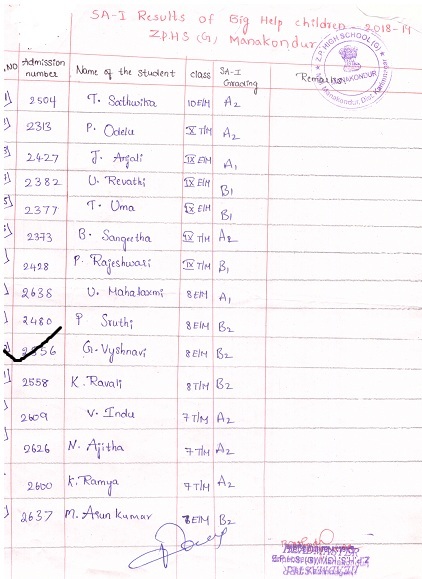 SA-I Results of Big Help children - 2018-19
Z.P.HS (G), Manakondur
S.NO Admission number Name of the student class SA-I Grading Remarks
1) 2504 T. Sathwika 10 E/M A2
2313 P. Odelu X T/M A2
3) 2427 J. Anjali IX E/M A1
2382 U. Revathi IX E/M B1
5) 2377 T. Uma IX E/M B1
2373 B. Sangeetha IX T/M A2
2428 P. Rajeshwari IX T/M B1
2638 U. Mahalaxmi 8 E/M A1
2480 P Sruthi 8 E/M B2
2556 G. Vyshnavi 8 E/M B2
11) 2558 K. Ravali 8 T/M B2
2609 V. Indu 7 T/M A2
2626 N. Ajitha 7 T/M A2
2600 K. Ramya 7 T/M A2
2637 M. Arun Kumar 8 E/M B2
Z.P HIGH SCHOOL (G)
MANAKONDUR